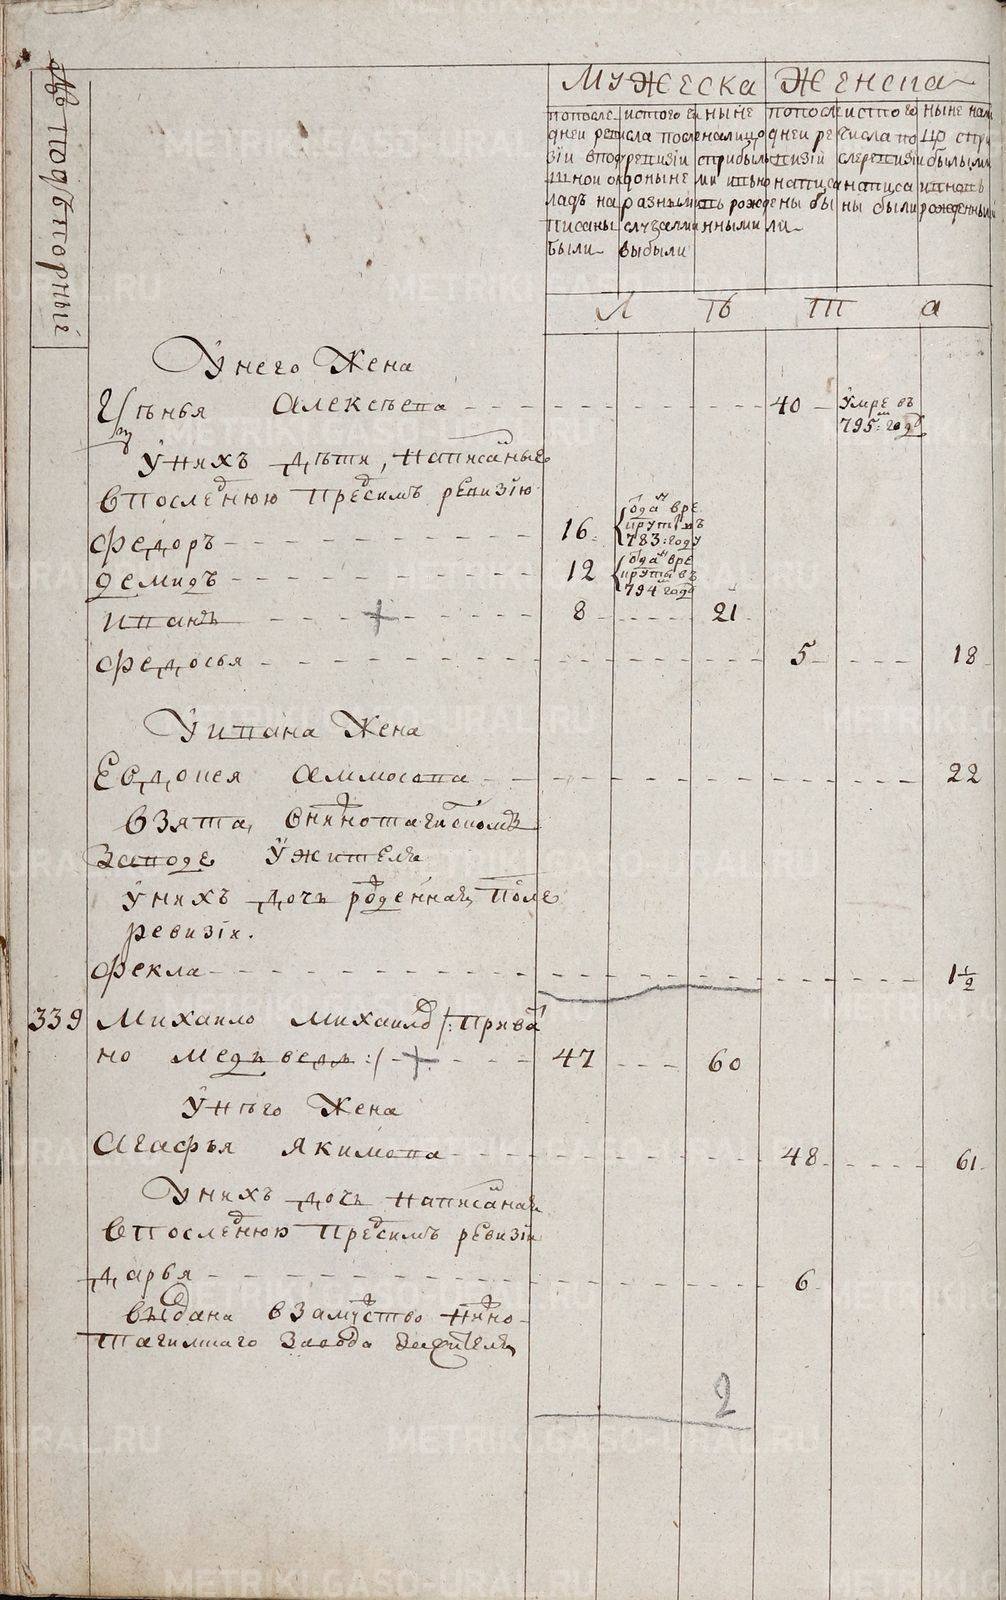 № подворный
Мужеска Женска
по после
дней реви
зіи в по
душной ок
ладъ на
писаны
были
ис того чи
сла после
ревизіи
до ныне
разными
случаями
выбыли
ныне
на лицо
с прибыл
ми и вно
вь рожде
нными
по после
дней ре
визіи
написа
ны бы
ли
ис того
числа по
сле ревизіи
написа
ны были
ныне на ли
цо с при
былыми
и вновь
рожденными
Л Ѣ Т А
У него Жена
Алексѣева 40 Умре въ
795: году
У нихъ дѣти, написаные
в последнюю пред симъ ревизію
Федоръ 16 { Отданъ в ре
круты въ
783: году
Демидъ 12 { Отданъ в ре
круты въ
794 году
Иванъ 8 21
Федосья 5 18
У Ивана Жена
Евдокея Аммосова 22
взята в нижнотагилскомъ
Заводе у жителя
У нихъ дочь рожденная после
ревизіи.
Фекла 1 1/2
339 Михаило Михаиловъ /: Прозва
но Медведевъ :/ 47 60
У него Жена
Агафья Якимова 48 61
У нихъ дочь написаная
в последнюю пред симъ ревизіи
Дарья 6
выдана в замужство нижно
тагилского Завода за жителя
2
METRIKI.GASO-URAL.RU